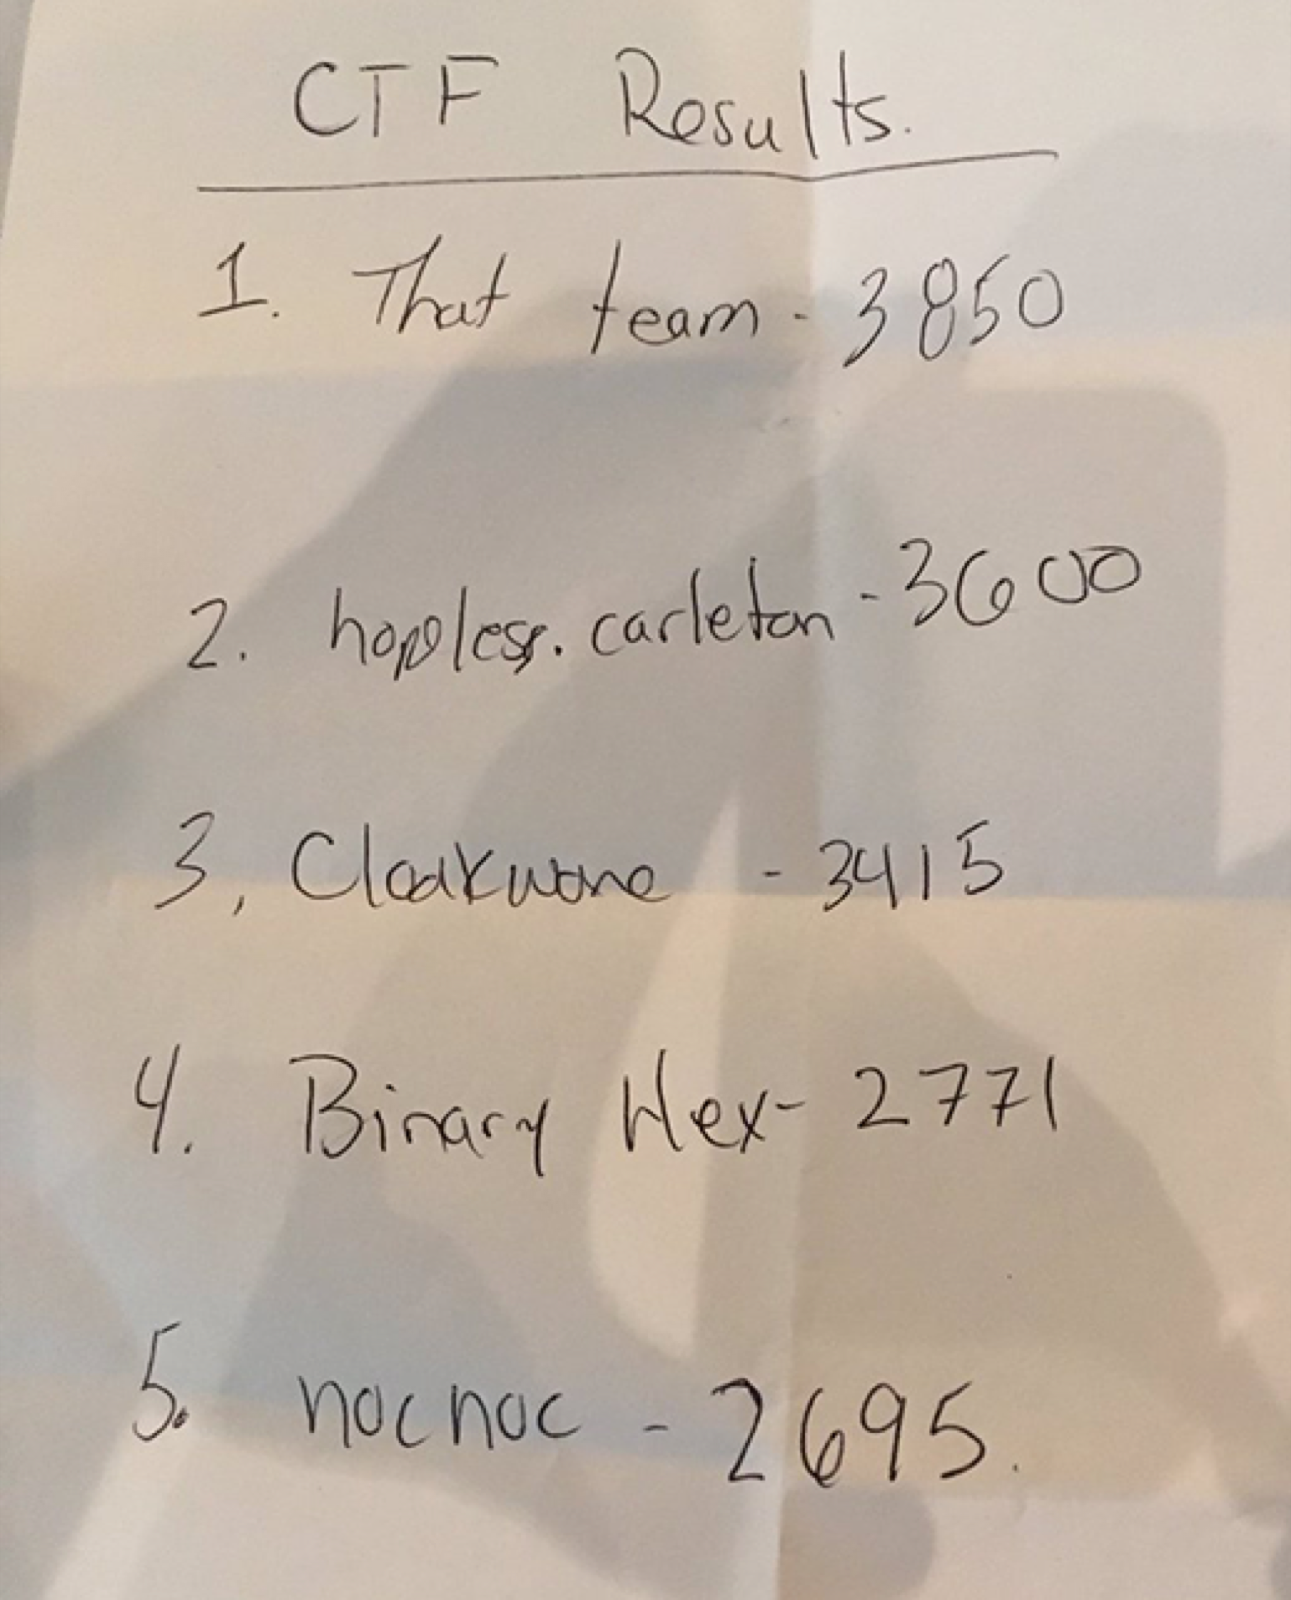 CTF Results.
1. That team - 3850
2. hopeless.carleton - 3600
3, Cloakwane - 3415
4. Binary Hex - 2771
5. nocnoc - 2695.